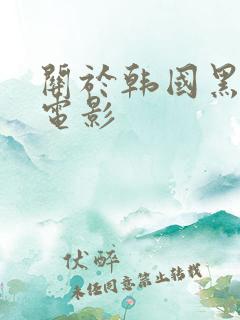 關於韩國黑
電影
伏醉
未经同意禁止转载